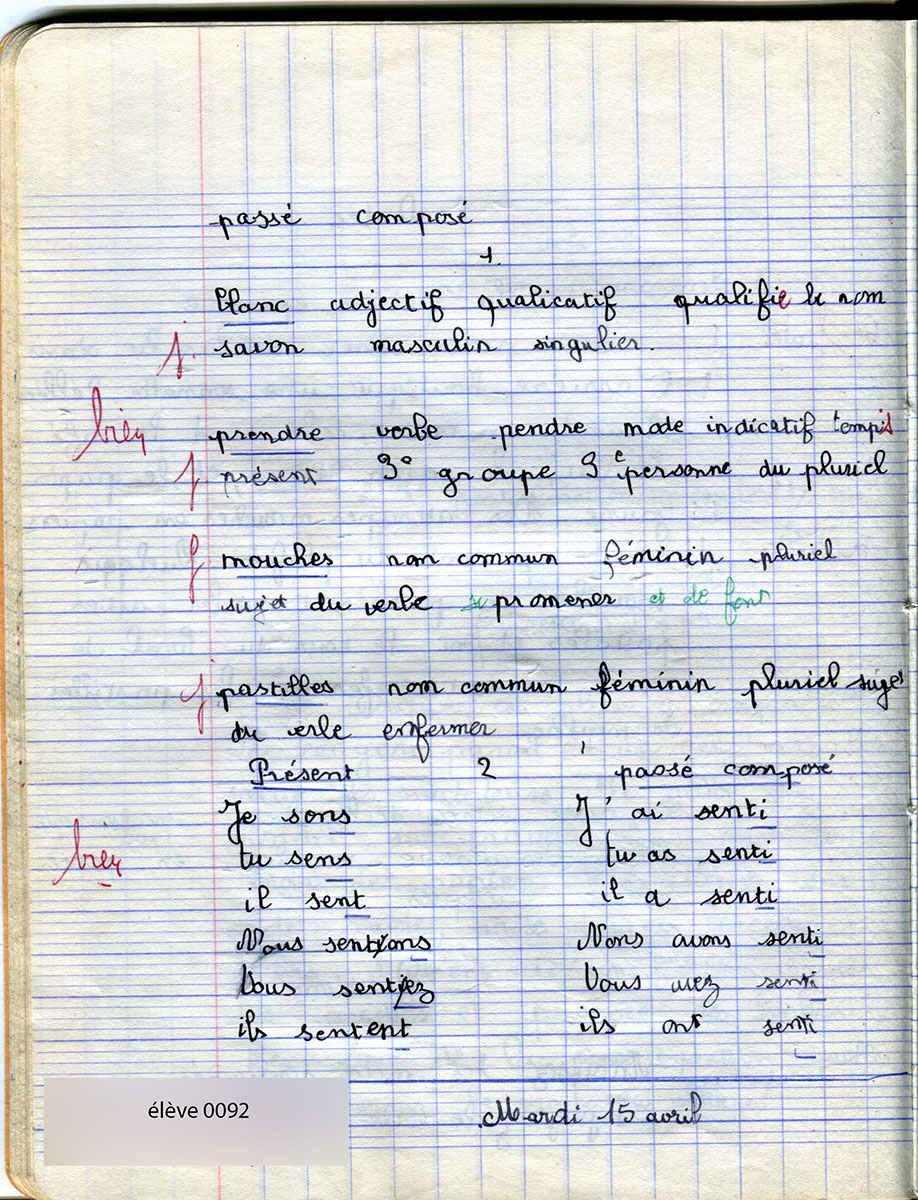 passé composé
1.
blanc adjectif qualicatif qualifie le nom
j. savon masculin singulier.
bien
prendre verbe pendre mode indicatif temps
j présent 3e groupe 3e personne du pluriel
j mouches nom commun féminin pluriel
sujet du verbe se promener et de font
j pastilles nom commun féminin pluriel sujet
du verle enfermer
Présent 2 passé composé
Je sens J'ai senti
bien tu sens tu as senti
il sent il a senti
Nous sentons Nous avons senti
Vous sentez Vous avez senti
ils sentent ils ont senti
élève 0092
Mardi 15 avril